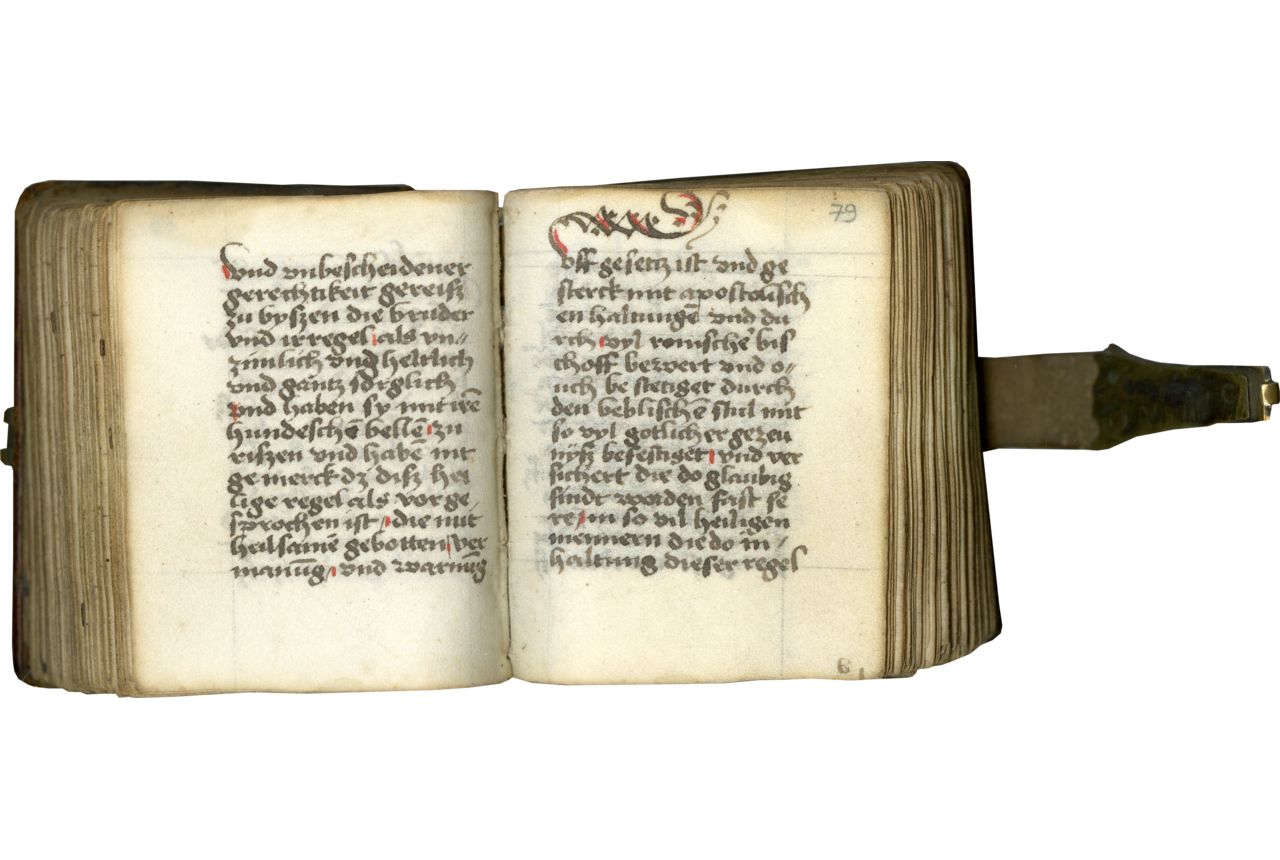 vnd vnbescheidener
gerechtikeit gereisz
zu byszen die bruder
vnd ir regel / als vn=
zimlich vnd heltlich
vnd gantz sorglich
vnd haben sy mit irē
hundeschē bellē / zu
riszen vnd habē nit
gemerck dz disz hei
lige regel als vor ge
sprochen ist / die mit
heilsamē gebotten / ver
manūg / vnd warnūg
79
vff gesetz ist vnd ge
sterck mit apostolisch
en haltungē vnd du
rch vyl romischer bis
choff bewert vnd o=
uch bestetiget durch
den beblischē stul mit
so vyl gotlicher gezeu
nysz befestiget / vnd ver
sichert die do glaubig
sindt worden fast se
re / in so vil heiligen
mennern die do in=
haltung dieser regel